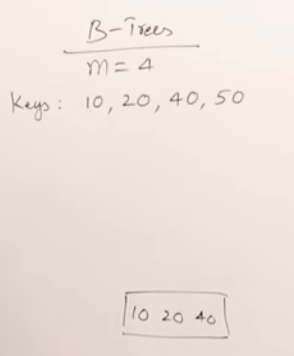 B-Trees
m = 4
Keys: 10, 20, 40, 50
10 20 40